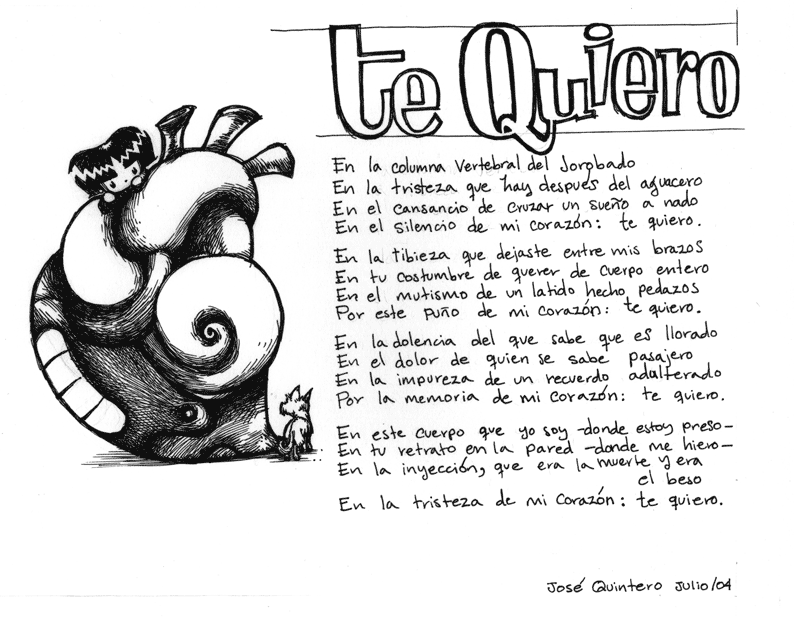 te Quiero
En la columna vertebral del Jorobado
En la tristeza que hay despues del aguacero
En el cansancio de cruzar un sueño a nado
En el silencio de mi corazón: te quiero.
En la tibieza que dejaste entre mis brazos
En tu costumbre de querer de cuerpo entero
En el mutismo de un latido hecho pedazos
Por este puño de mi corazón: te quiero.
En la dolencia del que sabe que es llorado
En el dolor de quien se sabe pasajero
En la impureza de un recuerdo adulterado
Por la memoria de mi corazón: te quiero.
En este cuerpo que yo soy -donde estoy preso-
En tu retrato en la pared -donde me hiero-
En la inyección, que era la muerte y era
el beso
En la tristeza de mi corazón: te quiero.
José Quintero Julio/04